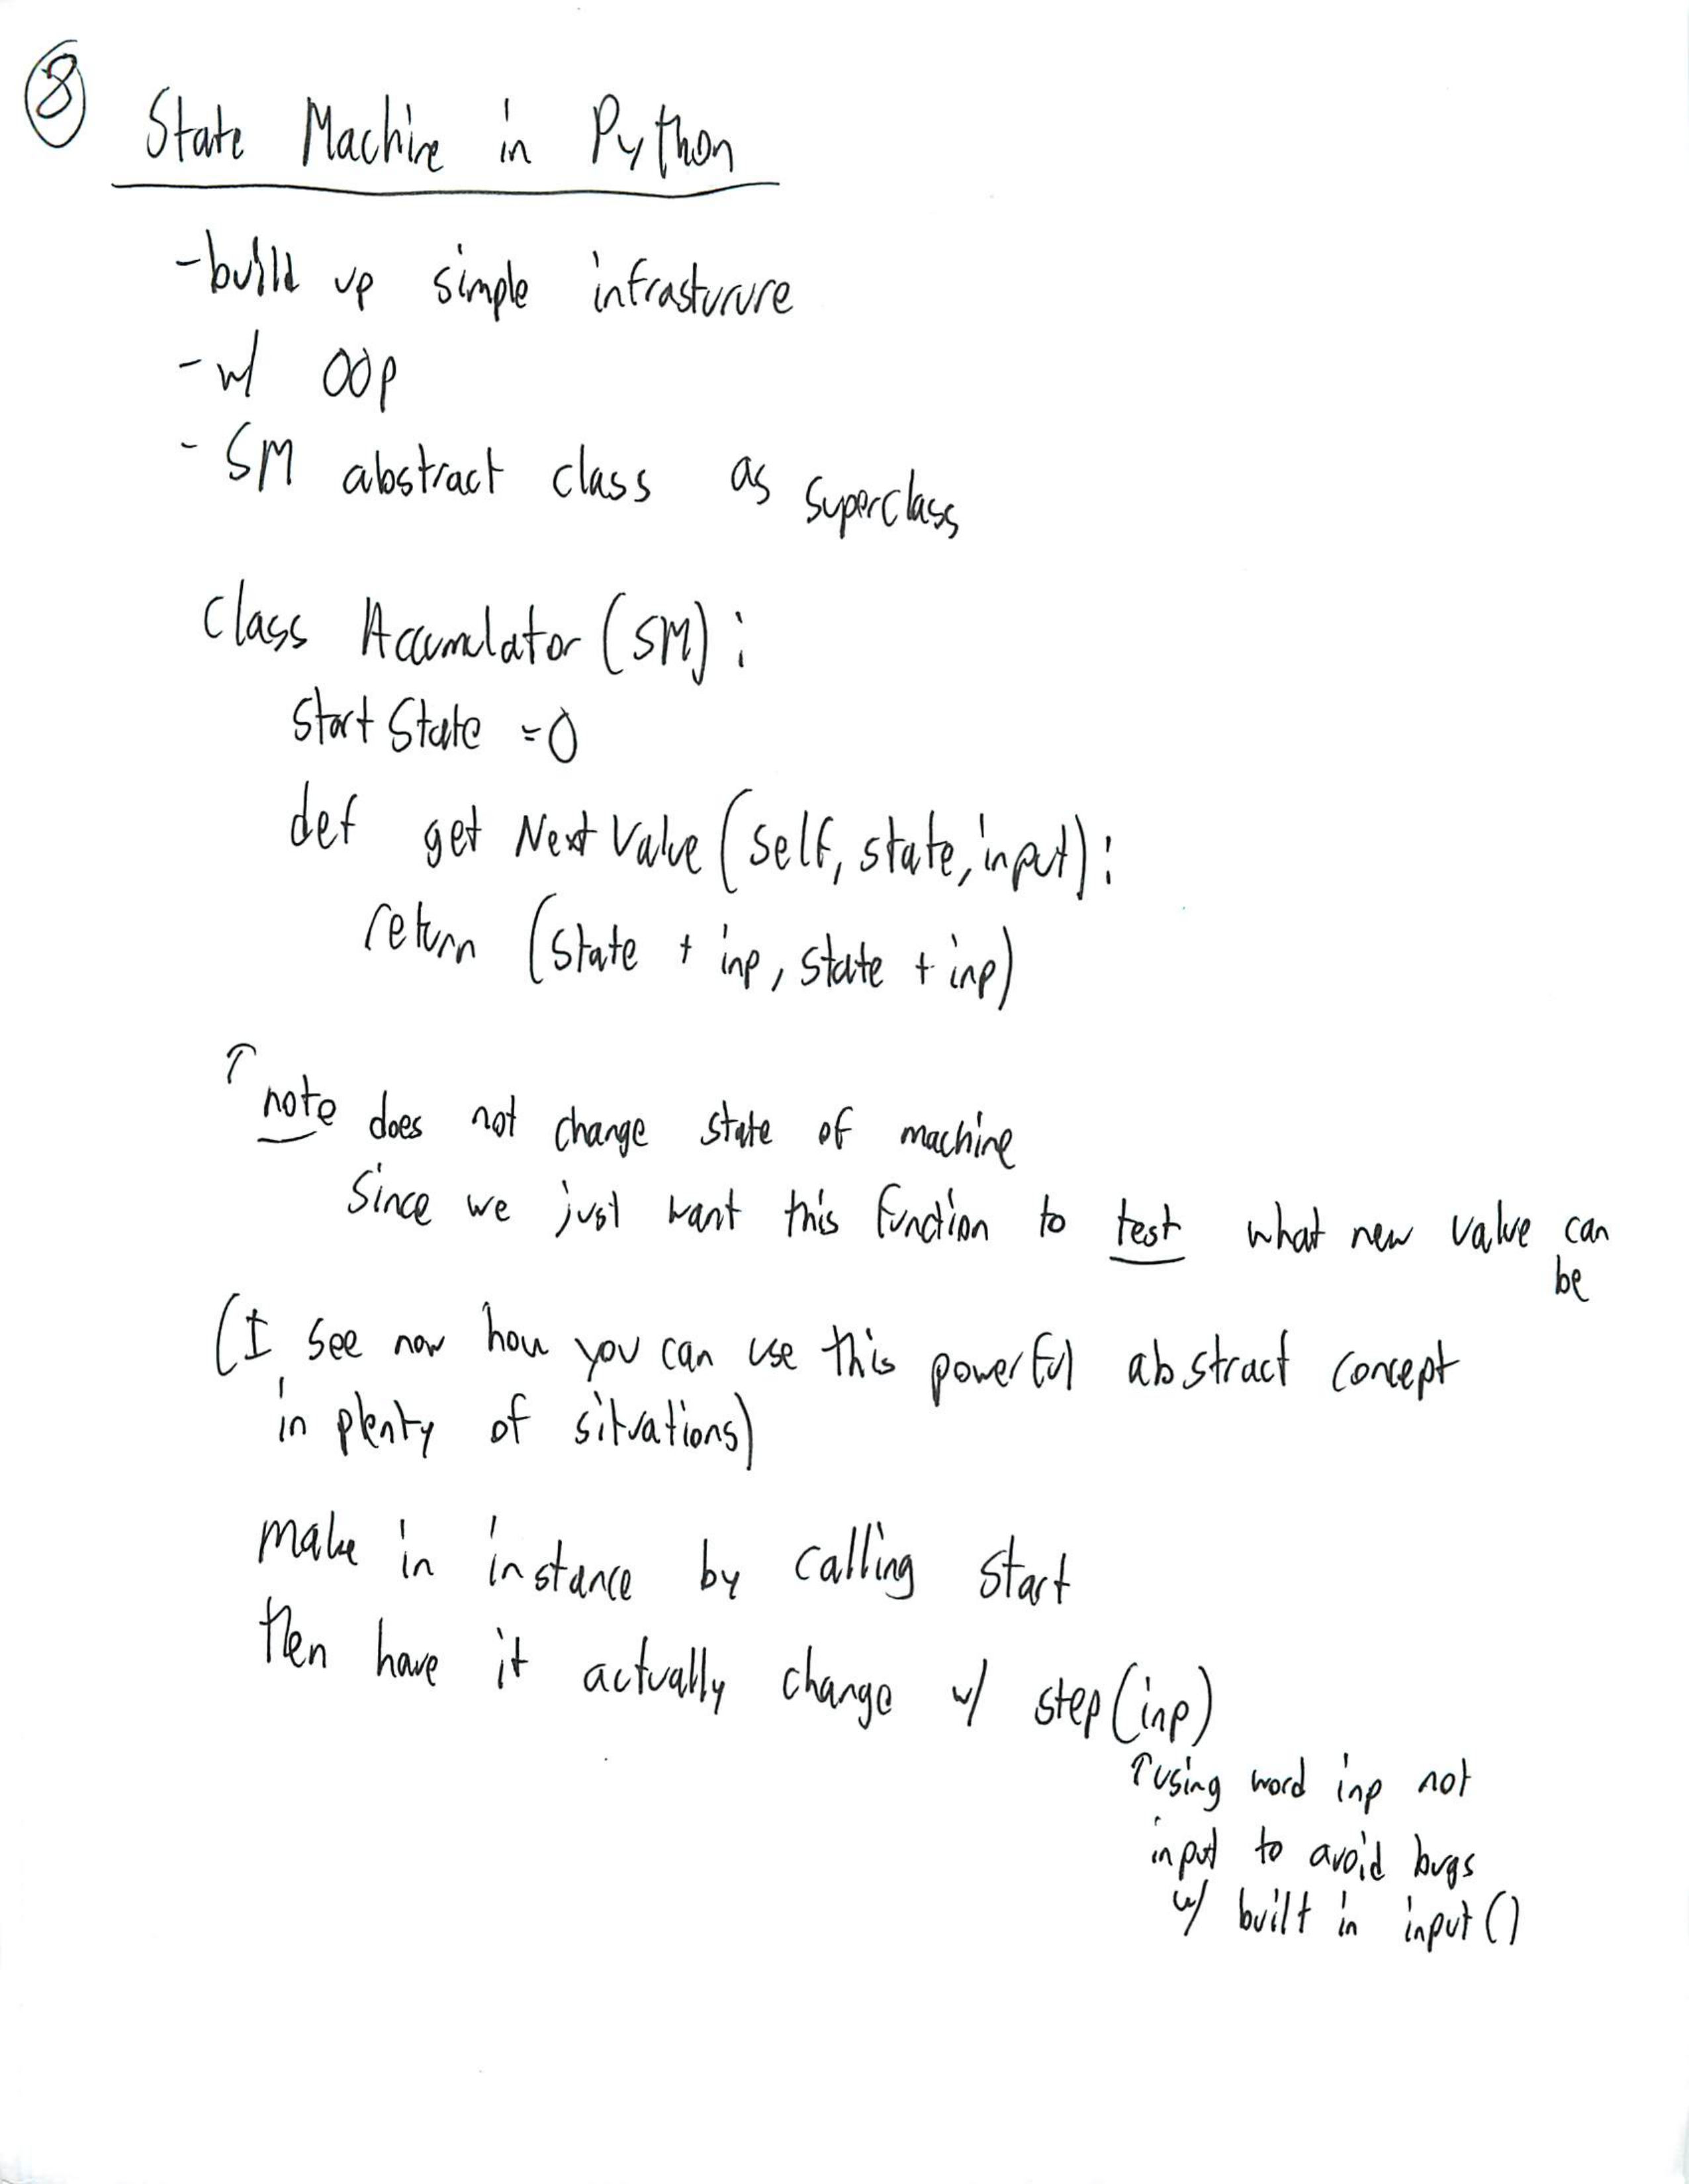 8
State Machine in Python
- build up simple infrasturure
- w/ OOP
- SM abstract class as superclass
class Accumulator (SM):
startState = 0
def getNextValue (self, state, input):
return (state + inp, state + inp)
↑ note does not change state of machine
since we just want this function to test what new value can
be
(I see now how you can use this powerful abstract concept
in plenty of situations)
make in instance by calling start
then have it actually change w/ step(inp)
↑ using word inp not
input to avoid bugs
w/ built in input()